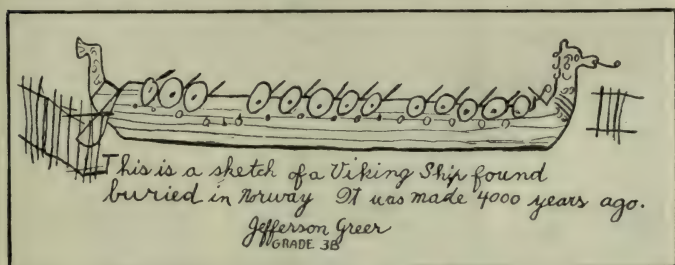 This is a sketch of a Viking Ship found
buried in Norway It was made 4000 years ago.
Jefferson Greer
GRADE 3B